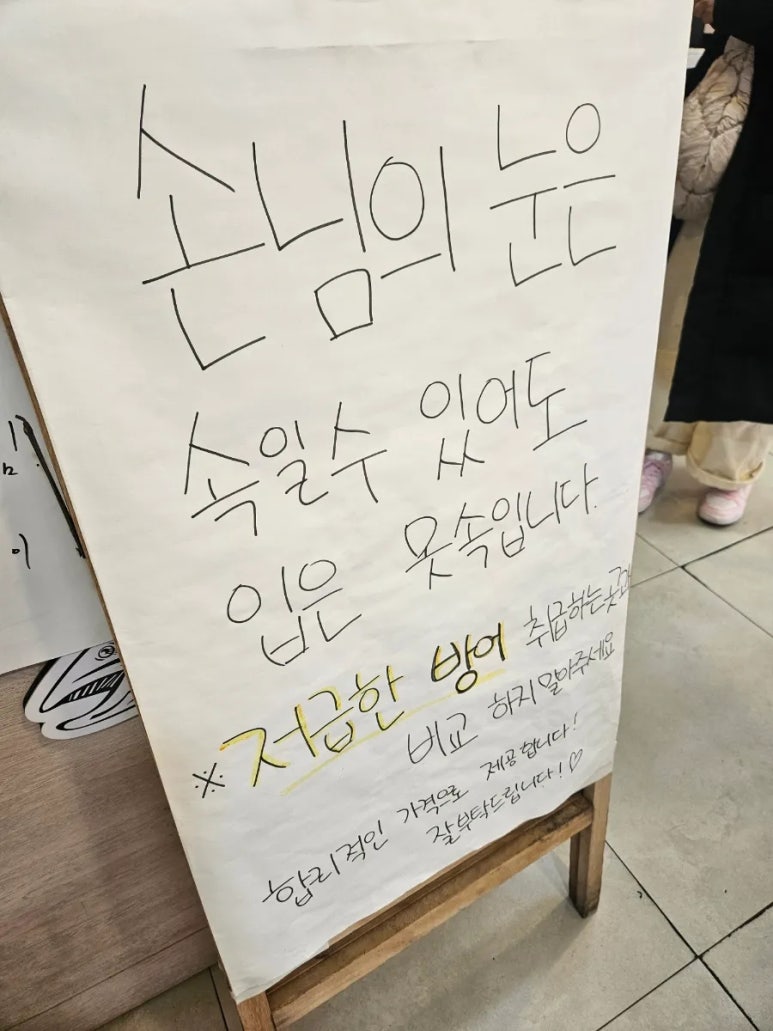 손님의 눈은
속일수 있어도
입은 못속입니다.
※ 저급한 방어 취급하는곳과
비교 하지 말아주세요
합리적인 가격으로 제공합니다!
잘부탁드립니다!♡